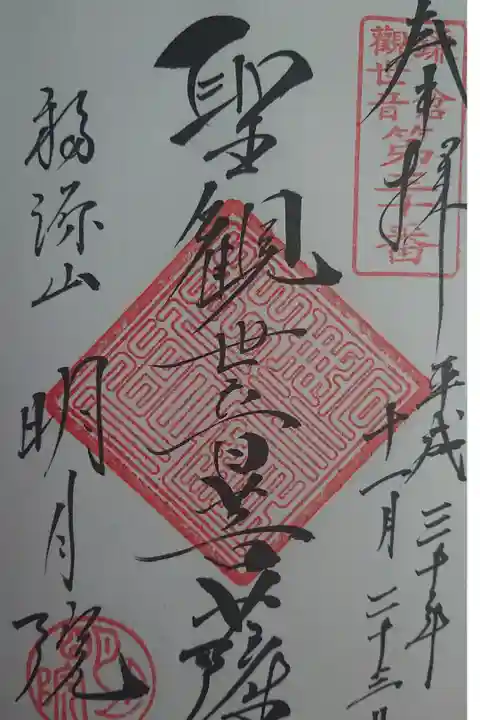 奉拝
鎌倉
觀世音第三十番
平成三十年
十一月二十三日
聖観世音菩薩
福源山
明月院